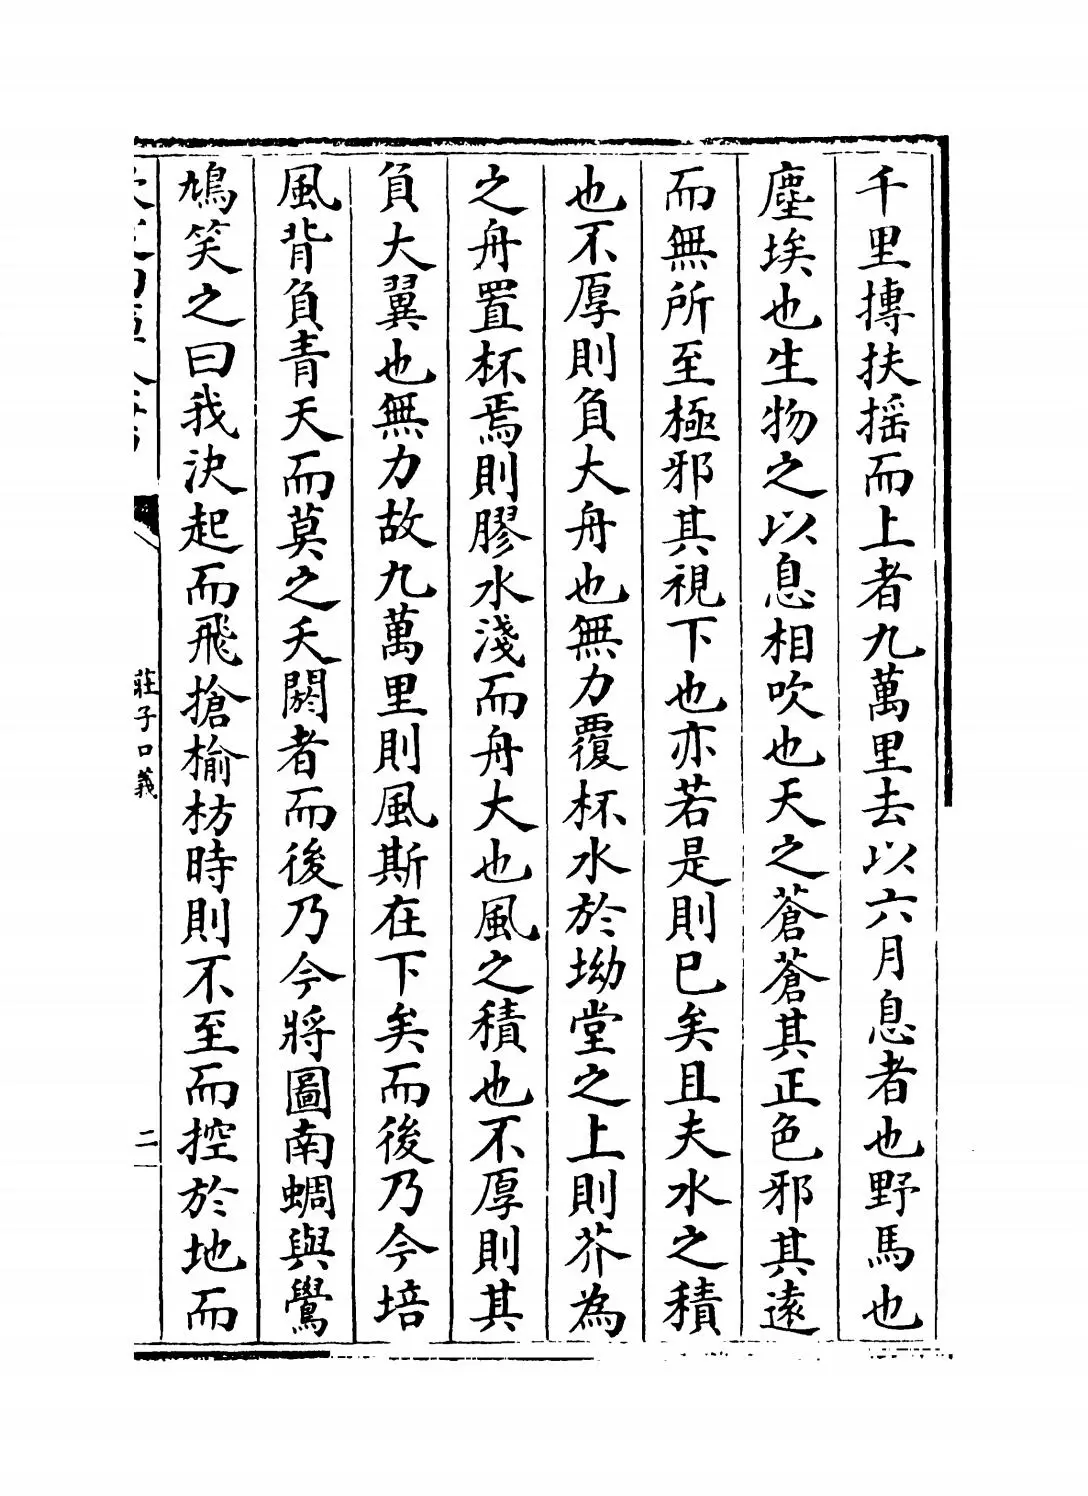 千里摶扶揺而上者九萬里去以六月息者也野馬也
塵埃也生物之以息相吹也天之蒼蒼其正色邪其逺
而無所至極邪其視下也亦若是則已矣且夫水之積
也不厚則負大舟也無力覆杯水於坳堂之上則芥為
之舟置杯焉則膠水淺而舟大也風之積也不厚則其
負大翼也無力故九萬里則風斯在下矣而後乃今培
風背負青天而莫之夭閼者而後乃今將圖南蜩與鷽
鳩笑之曰我決起而飛搶榆枋時則不至而控於地而
莊子口義
二